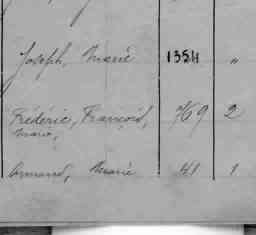 Joseph, Marie 1354 "
Frédéric, François, 769 2
Marie,
Armand, Marie 41 1